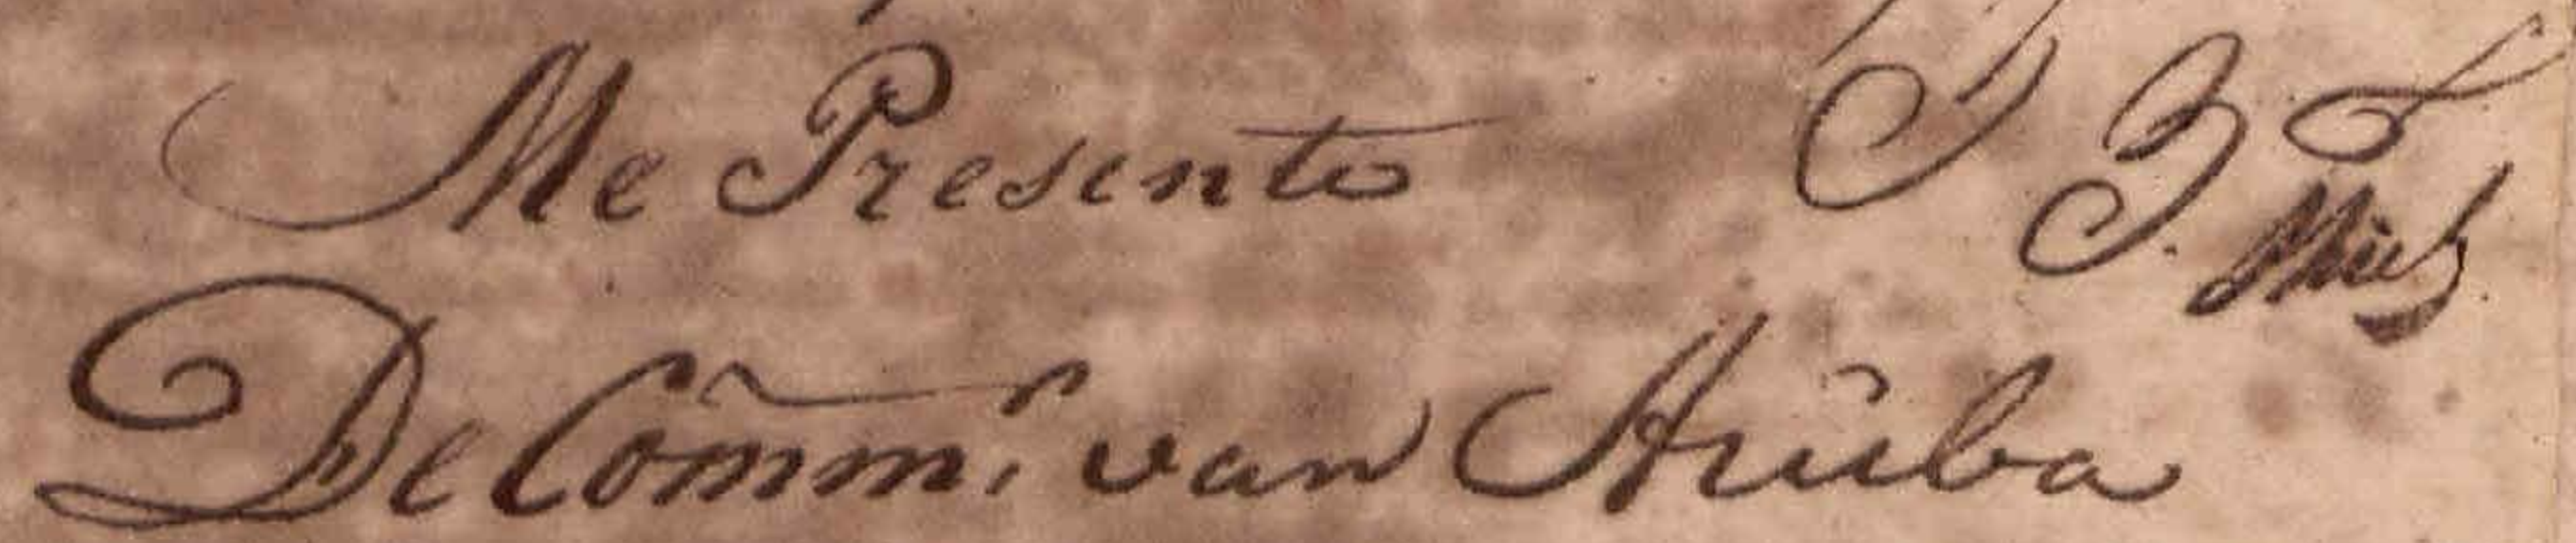 Me Presente
De Comm.r van Aruba